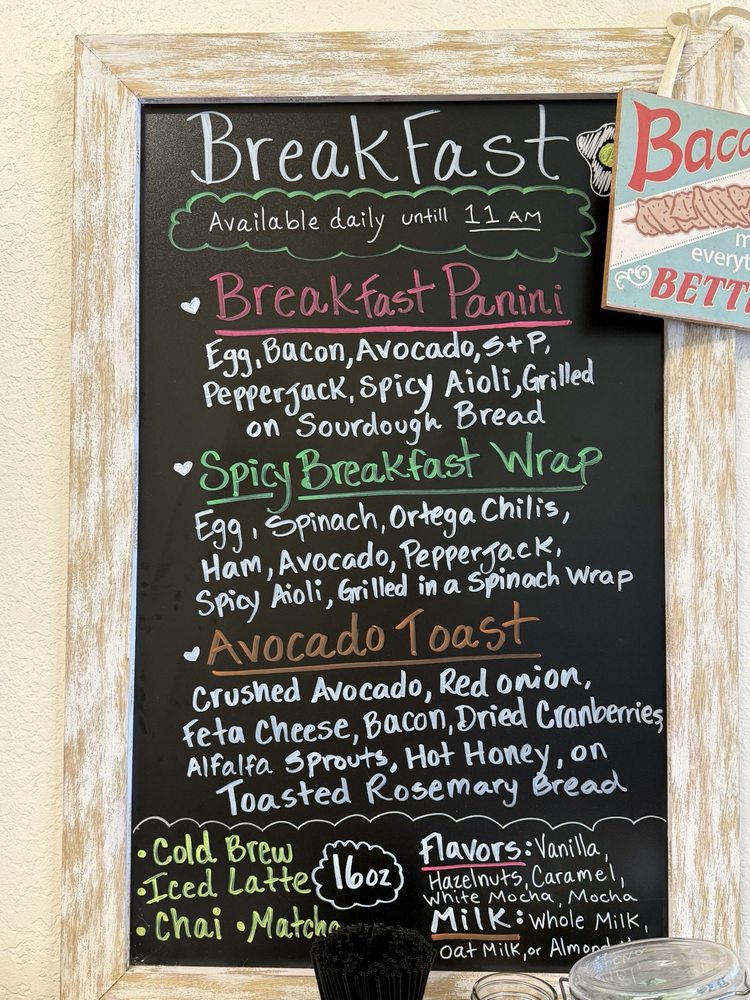 Breakfast
Available daily untill 11 AM
Breakfast Panini
Egg, Bacon, Avocado, S+P,
Pepperjack, Spicy Aioli, Grilled
on Sourdough Bread
Spicy Breakfast Wrap
Egg, Spinach, Ortega Chilis,
Ham, Avocado, Pepperjack,
Spicy Aioli, Grilled in a Spinach Wrap
Avocado Toast
Crushed Avocado, Red onion,
Feta Cheese, Bacon, Dried Cranberries,
Alfalfa Sprouts, Hot Honey, on
Toasted Rosemary Bread
• Cold Brew
• Iced Latte
• Chai • Matcha
16oz
Flavors: Vanilla,
Hazelnuts, Caramel,
White Mocha, Mocha
Milk: Whole Milk,
Oat Milk, or Almond
BETT